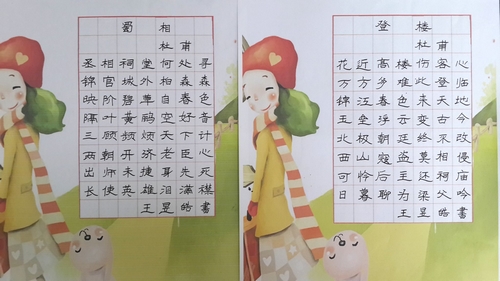 蜀相
杜甫
丞相祠堂何处寻
锦官城外柏森森
映阶碧草自春色
隔叶黄鹂空好音
三顾频烦天下计
两朝开济老臣心
出师未捷身先死
长使英雄泪满襟
王昱皓書
登楼
杜甫
花近高楼伤客心
万方多难此登临
锦江春色来天地
玉垒浮云变古今
北极朝廷终不改
西山寇盗莫相侵
可怜后主还祠庙
日暮聊为梁父吟
王昱皓書